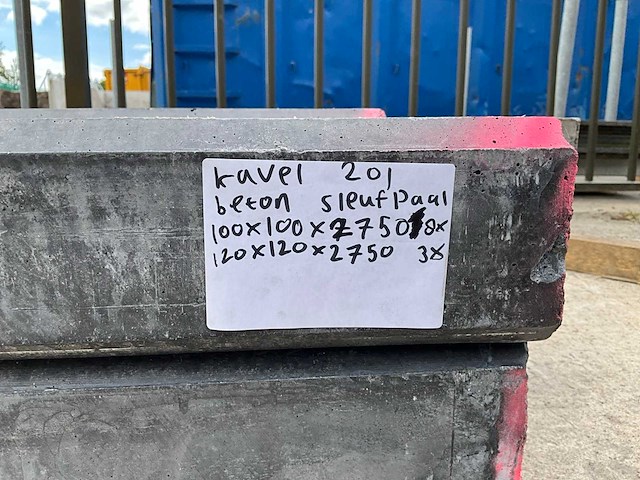 kavel 201
beton sleufpaal
100x100x2750 8x
120x120x2750 3x